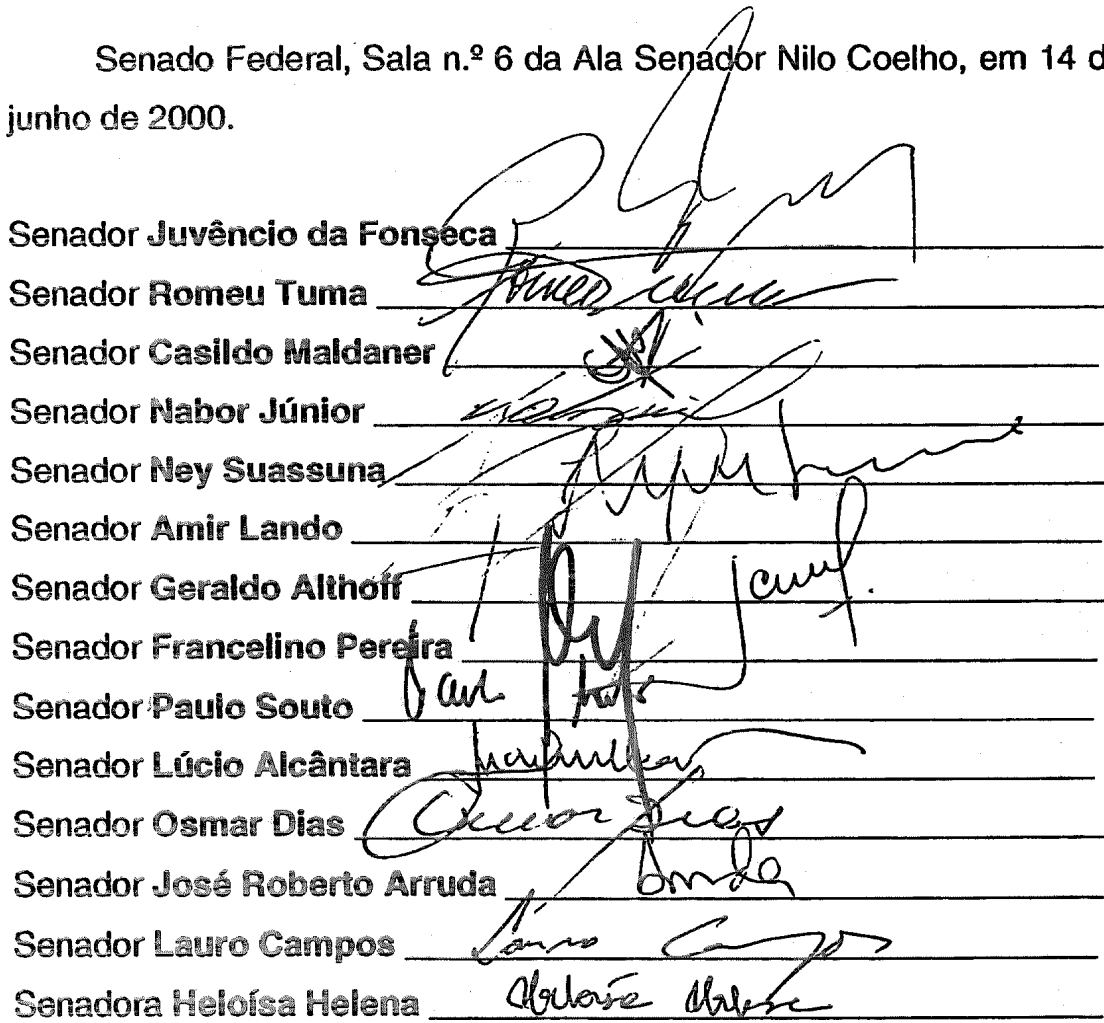 Senado Federal, Sala n.º 6 da Ala Senador Nilo Coelho, em 14 d
junho de 2000.
Senador Juvêncio da Fonseca
Senador Romeu Tuma Romeu Tuma
Senador Casildo Maldaner
Senador Nabor Júnior
Senador Ney Suassuna
Senador Amir Lando
Senador Geraldo Althoff
Senador Francelino Pereira
Senador Paulo Souto Paulo Souto
Senador Lúcio Alcântara
Senador Osmar Dias Osmar Dias
Senador José Roberto Arruda Arruda
Senador Lauro Campos Lauro Campos
Senadora Heloísa Helena Heloísa Helena